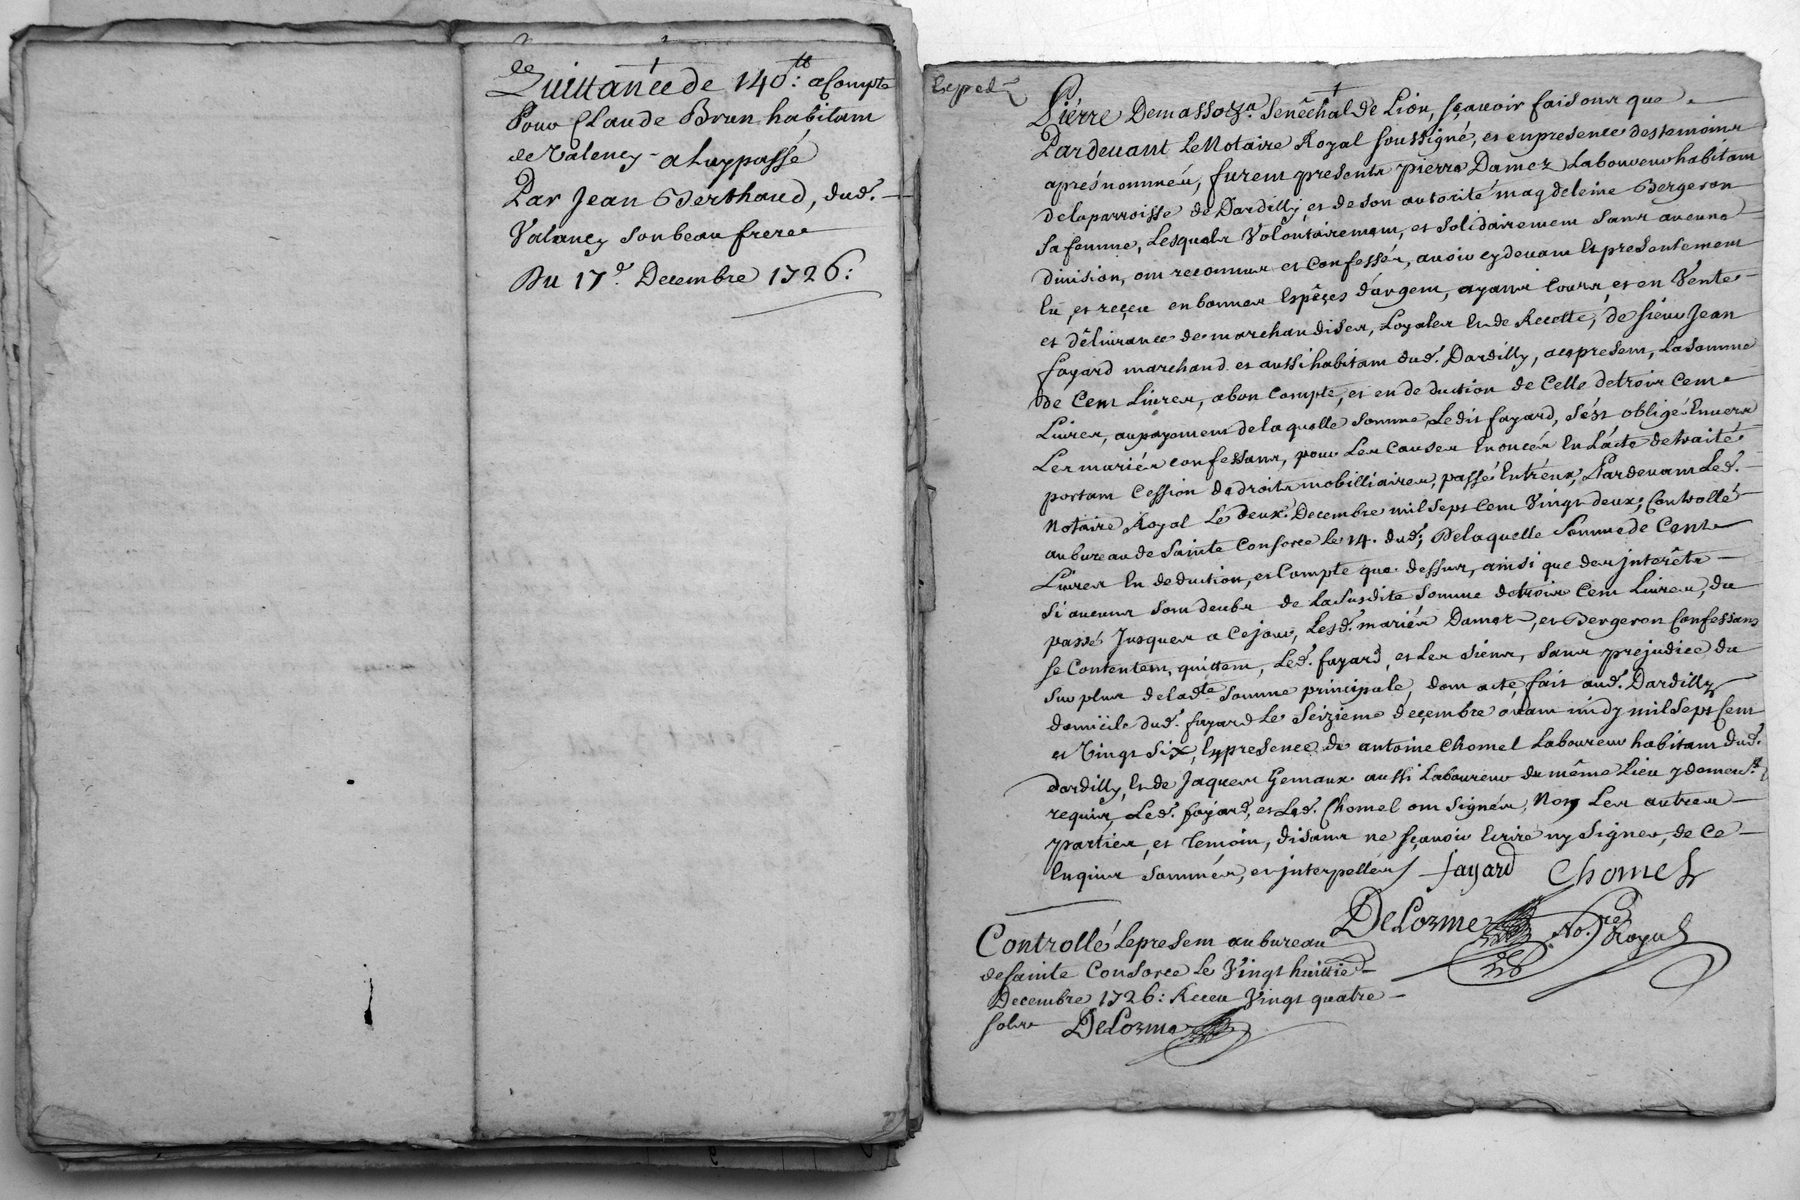 de
Quittance de 140.tt acompte
Pour Claude Brun habitant
de Valency a Luy passé
Par Jean Berthaud, dud.
Valency son beau frere
Du 17e. Decembre 1726:
Exped.
Pierre Demasso &a. Senêchal de Lion, sçavoir faisons que
Pardevant Le Notaire Royal soussigné, et en presence des temoins
aprés nommés, furent presents pierre Damez Laboureur habitant
de la parroisse de Dardilly, et de son autorité magdeleine Bergeron
sa femme, Lesquels Volontairement, et solidairement sans aucune
division, ont reconnus et Confessés, avoir cy devant Et presentement
Eu, et reçeu en bonnes Espêces d'argent, ayant Cours, et en Vente
et délivrance de marchandises, Loyales Et de Recette, de sieur Jean
fayard marchand et aussi habitant dud. Dardilly, acpresent, La somme
de Cent Livres, a bon Compte, et en deduction de Celle de trois Cent
Livres, au payement de laquelle somme, Ledit fayard, s'est obligé Envers
Les mariés confessans, pour Les Causes Enoncés En L'acte de traité
portant Cession de droits mobilliaires, passé Entreux, Pardevant Led.
Notaire Royal Le deux. Decembre mil sept Cent Vingt deux; Controllé
au bureau de Sainte Consorce Le 14. dud; De laquelle somme de Cent
Livres En deduction, et Compte que dessus, ainsi que des jnterêts
si aucuns sont deubs de La susdite somme de trois Cent Livres, du
passé Jusques a Ce jour, Lesd. mariés Damez, et Bergeron Confessans
se Contentent, quittent, Led. fayard, et Les siens, sans prejudice du
surplus de lad.te somme principale, dont acte, fait aud. Dardilly
domicile dud. fayard Le Seizieme decembre avant midy mil sept Cent
et Vingt six, En presence de antoine Chomel Laboureur habitant dud.
dardilly, Et de Jaques Gemaux aussi Laboureur du même Lieu y demeurt.
requis, Led. fayard, et Led. Chomel ont signés, Non Les autres
parties, et temoin, disans ne sçavoir Ecrire ny signer, de Ce
Enquis sommés, et jnterpellés fayard Chomel
DeLorme No.re Royal
Controllé Le present au bureau
de sainte Consorce Le Vingt huittie
Decembre 1726: Receu Vingt quatre
sols DeLorme